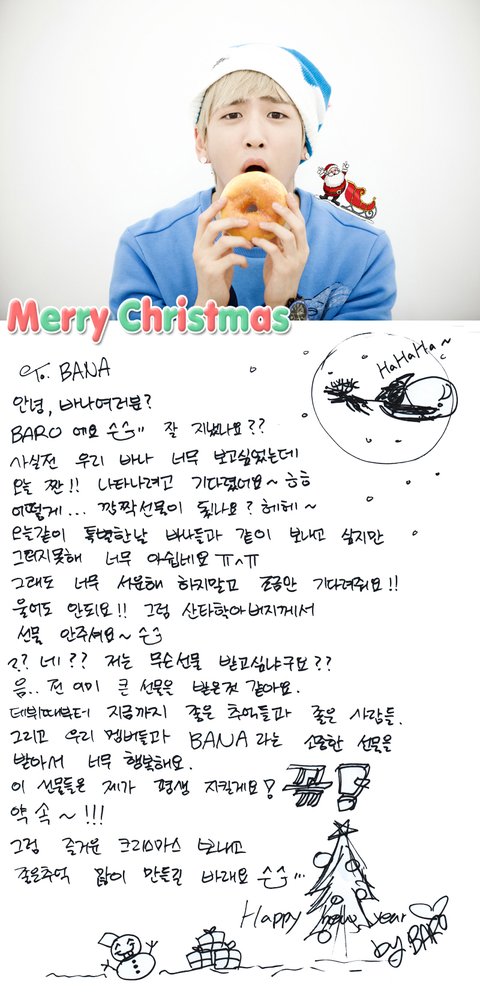 Merry Christmas
To. BANA
HaHaHa~
안녕, 바나여러분?
BARO 에요 잘 지냈나요??
사실전 우리 바나 너무 보고싶었는데
오늘 짠!! 나타나려고 기다렸어요~ ㅎㅎ
어떻게... 깜짝선물이 됐나요? 헤헤~
오늘같이 특별한날 바나들과 같이 보내고 싶지만
그러지못해 너무 아쉽네요 ㅠ^ㅠ
그래도 너무 서운해 하지말고 조금만 기다려줘요!!
울어도 안되요!! 그럼 산타할아버지께서
선물 안주셔요~
?? 네?? 저는 무슨선물 받고싶냐구요??
음.. 전 이미 큰 선물을 받은것 같아요.
데뷔때부터 지금까지 좋은 추억들과 좋은 사람들.
그리고 우리 멤버들과 BANA라는 소중한 선물을
받아서 너무 행복해요.
이 선물들은 제가 평생 지킬게요!
약속~!!!
그럼 즐거운 크리스마스 보내고
좋은추억 많이 만들길 바래요
Happy new year
by. BARO